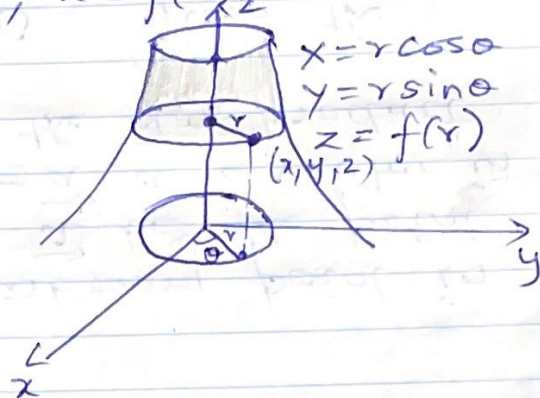 z
x = r cosθ
y = r sinθ
z = f(r)
r
(x, y, z)
r
θ
y
x